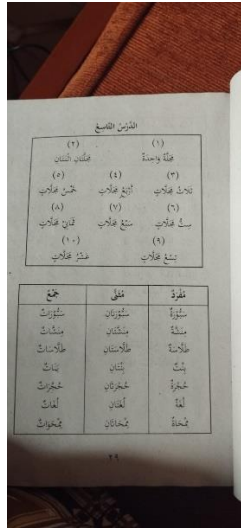 الدَّرْسُ التَّاسِعُ
(١) (٢)
مَجَلَّةٌ وَاحِدَةٌ مَجَلَّتَانِ اثْنَتَانِ
(٣) (٤) (٥)
ثَلَاثُ مَجَلَّاتٍ أَرْبَعُ مَجَلَّاتٍ خَمْسُ مَجَلَّاتٍ
(٦) (٧) (٨)
سِتُّ مَجَلَّاتٍ سَبْعُ مَجَلَّاتٍ ثَمَانِيْ مَجَلَّاتٍ
(٩) (١٠)
تِسْعُ مَجَلَّاتٍ عَشْرُ مَجَلَّاتٍ
مُفْرَدٌ مُثَنًّى جَمْعٌ
سَبُّوْرَةٌ سَبُّوْرَتَانِ سَبُّوْرَاتٌ
مِنَشَّةٌ مِنَشَّتَانِ مِنَشَّاتٌ
طَلَّاسَةٌ طَلَّاسَتَانِ طَلَّاسَاتٌ
بِنْتٌ بِنْتَانِ بَنَاتٌ
حُجْرَةٌ حُجْرَتَانِ حُجُرَاتٌ
لُغَةٌ لُغَتَانِ لُغَاتٌ
مِمْحَاةٌ مِمْحَاتَانِ مِمْحَوَاتٌ
٢٩